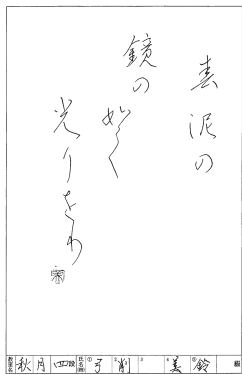 春泥の
鏡の
如く
光りをり
教室名 秋月 四段 氏名 ①弓 ②削 3 4美 ⑤鈴 級